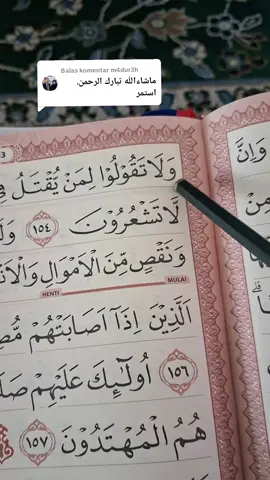 Balas komentar m4dur3h
ماشاءالله تبارك الرحمن.
استمر
3
وَلَا تَقُوْلُوْا لِمَنْ يُّقْتَلُ فِ
وَاِنَّ
لَّا تَشْعُرُوْنَ ١٥٤ وَلَ
وَنَقْصٍ مِّنَ الْاَمْوَالِ وَالْاَنْ
HENTI MULAI
الَّذِيْنَ اِذَآ اَصَابَتْهُمْ مُّصِ
١٥٦ اُولٰۤىِٕكَ عَلَيْهِمْ صَلَ
هُمُ الْمُهْتَدُوْنَ ١٥٧